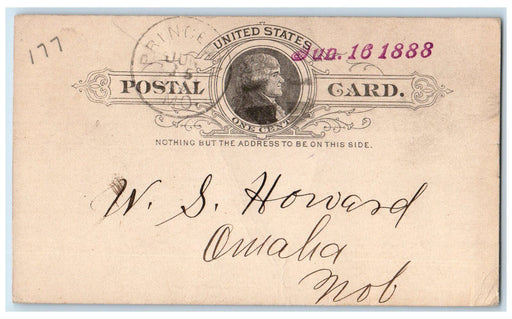 177
PRINCE
JUN
15
MO.
UNITED STATES
Jun. 16 1888
POSTAL CARD.
ONE CENT
NOTHING BUT THE ADDRESS TO BE ON THIS SIDE.
W. S. Howard
Omaha
Neb